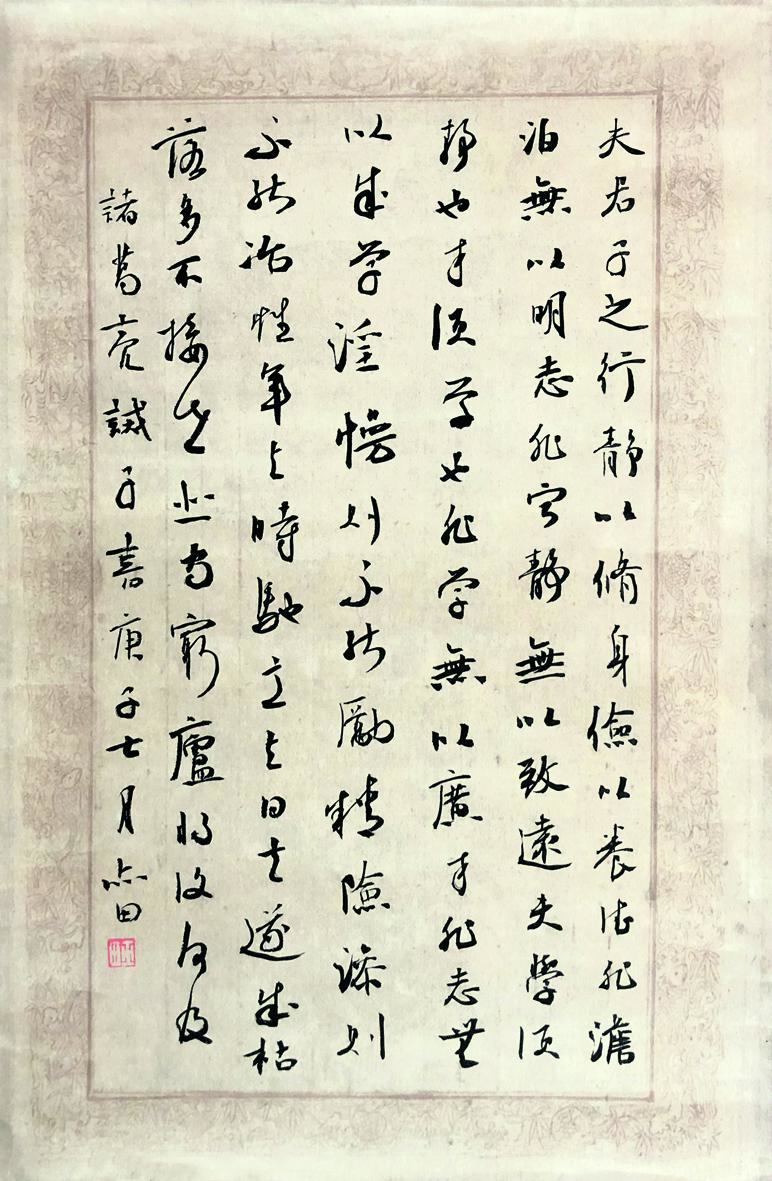 夫君子之行静以脩身儉以養德非澹
泊無以明志非宁静無以致遠夫學須
静也才須学也非学無以廣才非志無
以成学淫慢则不能勵精險躁则
不能治性年与時馳意与日去遂成枯
落多不接世悲守窮廬将復何及
諸葛亮誡子書庚子七月心田